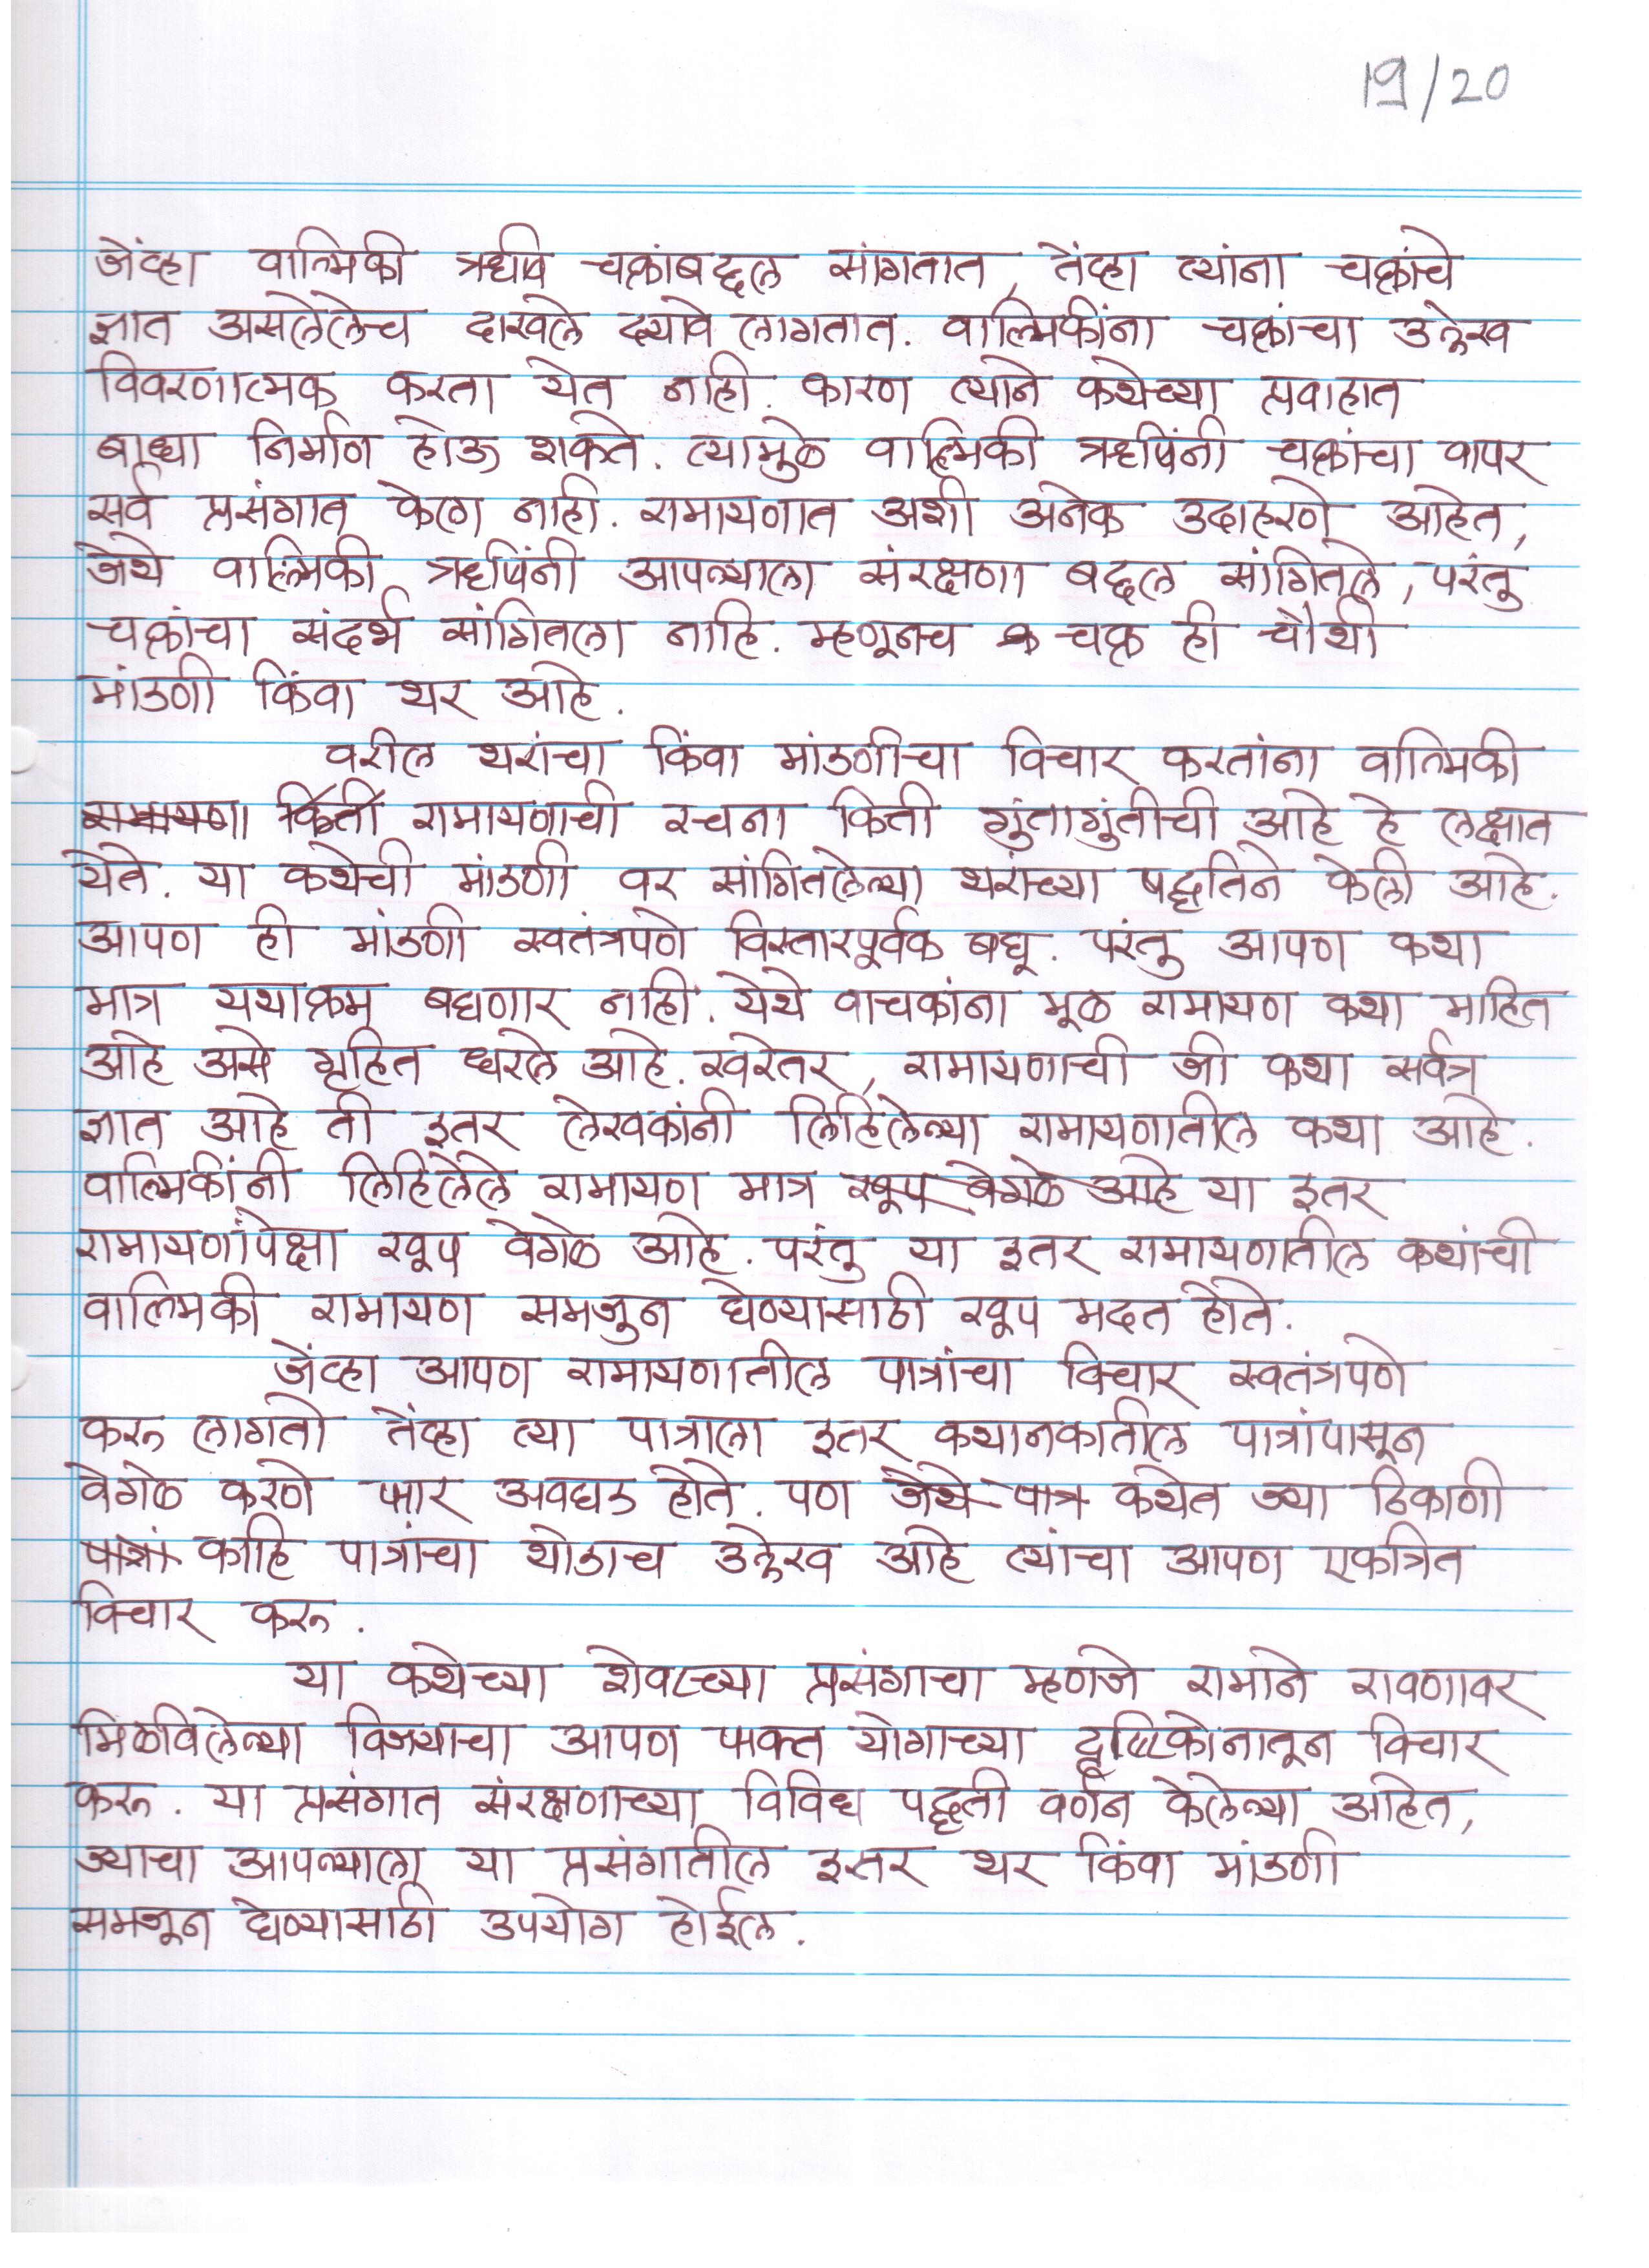 19/20
जेंव्हा वाल्मिकी ऋषि चक्रांबद्दल सांगतात, तेंव्हा त्यांना चक्रांचे
ज्ञात असलेलेच दाखले द्यावे लागतात. वाल्मिकींना चक्रांचा उल्लेख
विवरणात्मक करता येत नाही. कारण त्याने कथेच्या प्रवाहात
बाधा निर्माण होऊ शकते. त्यामुळे वाल्मिकी ऋषिंनी चक्रांचा वापर
सर्व प्रसंगात केला नाही. रामायणात अशी अनेक उदाहरणे आहेत,
जेथे वाल्मिकी ऋषिंनी आपल्याला संरक्षणा बद्दल सांगितले, परंतु
चक्रांचा संदर्भ सांगितला नाहि. म्हणूनच चक्र ही चौथी
मांडणी किंवा थर आहे.
वरील थरांचा किंवा मांडणीचा विचार करतांना वाल्मिकी
रामायणा किती रामायणाची रचना किती गुंतागुंतीची आहे हे लक्षात
येते. या कथेची मांडणी वर सांगितलेल्या थरांच्या पद्धतिने केली आहे.
आपण ही मांडणी स्वतंत्रपणे विस्तारपूर्वक बघू. परंतु आपण कथा
मात्र यथाक्रम बघणार नाही. येथे वाचकांना मूळ रामायण कथा माहित
आहे असे गृहित धरले आहे. खरेतर, रामायणाची जी कथा सर्वत्र
ज्ञात आहे ती इतर लेखकांनी लिहिलेल्या रामायणातील कथा आहे.
वाल्मिकींनी लिहिलेले रामायण मात्र खूप वेगळे आहे या इतर
रामायणांपेक्षा खूप वेगळे आहे. परंतु या इतर रामायणातील कथांची
वाल्मिकी रामायण समजुन घेण्यासाठी खूप मदत होते.
जेंव्हा आपण रामायणातील पात्रांचा विचार स्वतंत्रपणे
करू लागतो तेंव्हा त्या पात्राला इतर कथानकातील पात्रांपासून
वेगळे करणे फार अवघड होते. पण जेथे पात्र कथेत ज्या ठिकाणी
पात्रां काहि पात्रांचा थोडाच उल्लेख आहे त्यांचा आपण एकत्रित
विचार करू.
या कथेच्या शेवटच्या प्रसंगाचा म्हणजे रामाने रावणावर
मिळविलेल्या विजयाचा आपण फक्त योगाच्या दृष्टिकोनातून विचार
करू. या प्रसंगात संरक्षणाच्या विविध पद्धती वर्णन केलेल्या आहेत,
ज्याचा आपल्याला या प्रसंगातील इतर थर किंवा मांडणी
समजून घेण्यासाठी उपयोग होईल.